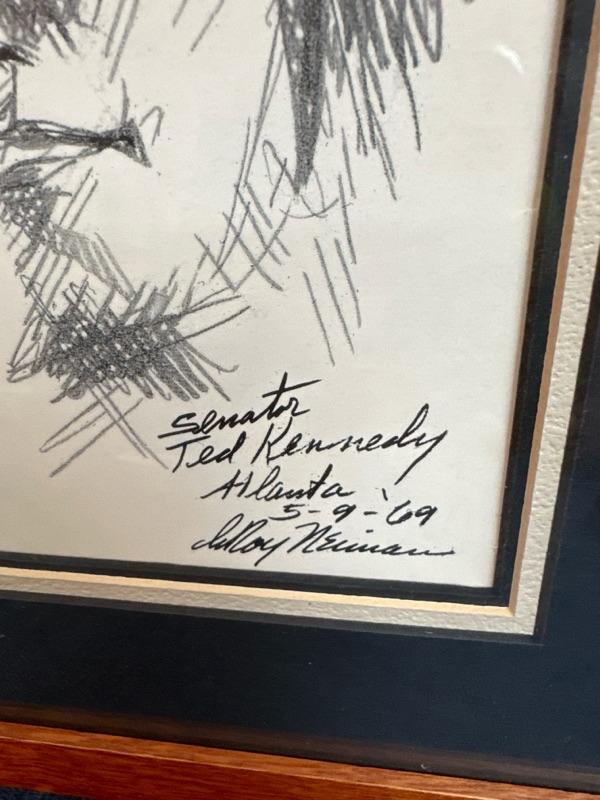 Senator
Ted Kennedy
Atlanta
5-9-'69
LeRoy Neiman